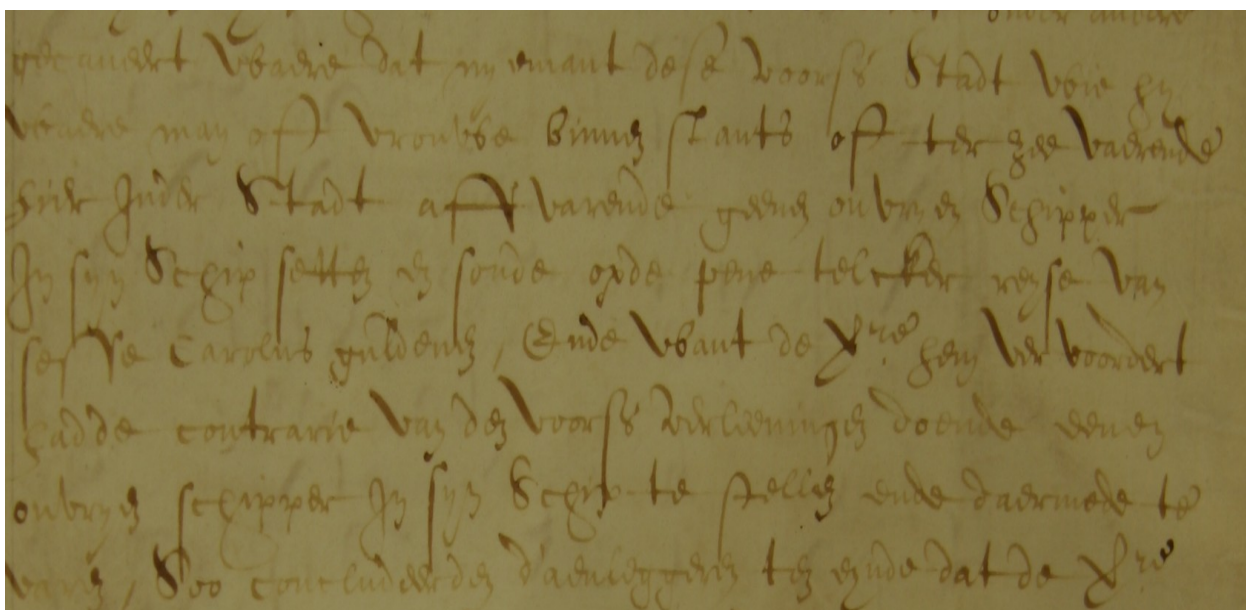 onder andere
gecaveert waere dat nyemant dese voorss Stadt wie hy
waere man off vrouwe binnen slants of ter zee vaerende
hier Inder Stadt aff varende geenen onvryen Schipper
In syn Schip setten en soude opde pene telcker reyse van
sesse Carolus guldenen, Ende want de Xre hem vervoordert
hadde contrarie vanden voorss verleeningen doende eenen
onvryen schipper In syn Schip te stellen ende daermede te
varen, Soo concludeerden d'aenleggeren ten eynde dat de Xre